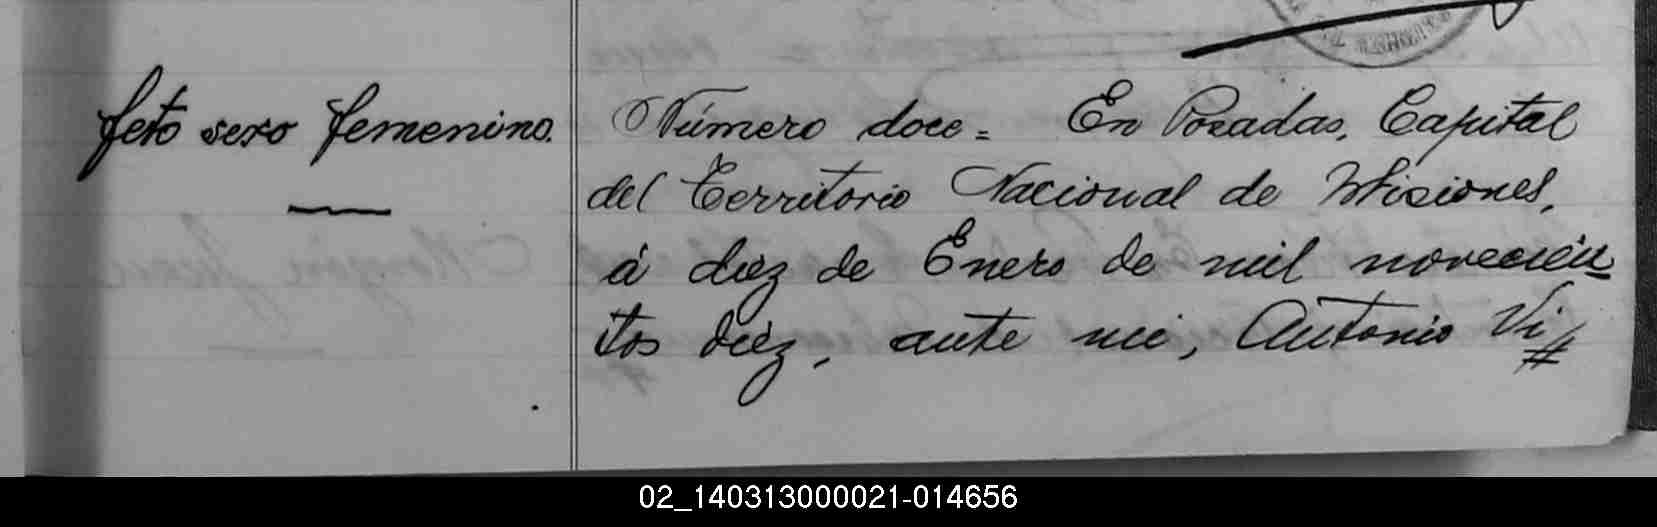 feto sexo femenino.
Número doce = En Posadas, Capital
del Territorio Nacional de Misiones,
á diez de Enero de mil novecien
tos diez, ante mi, Antonio Vi
02_140313000021-014656